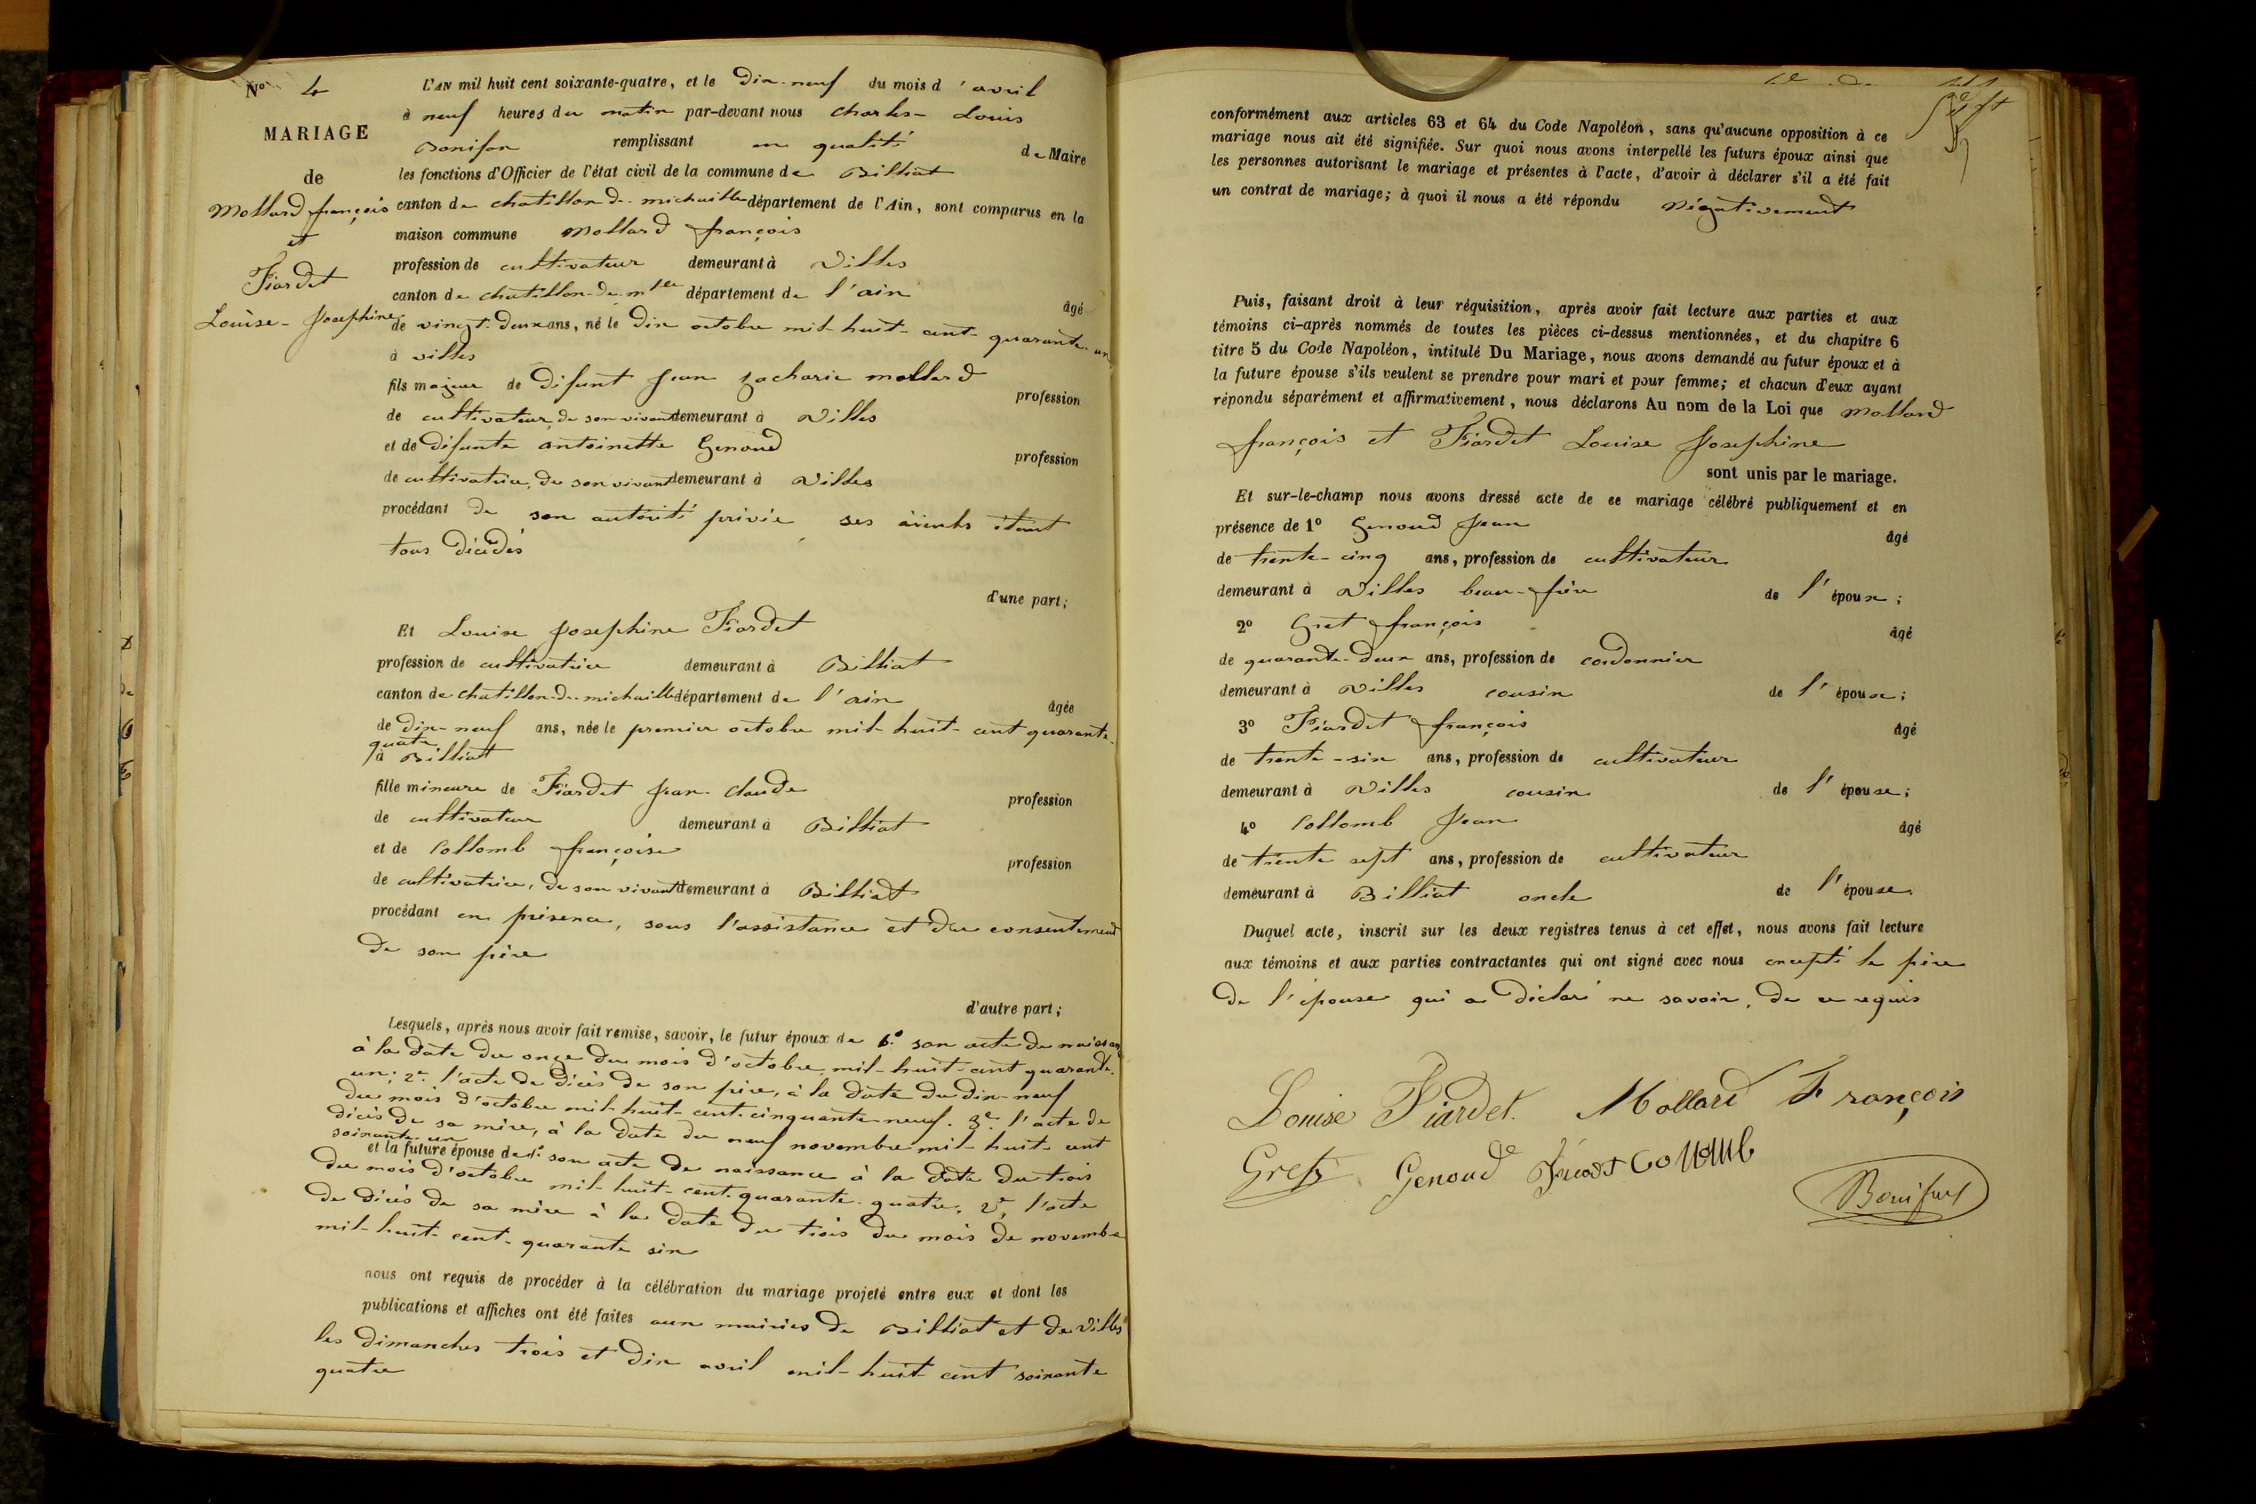 N° 4
MARIAGE
de
Mollard françois
et
Fiardet
Louise-Josephine
L'AN mil huit cent soixante-quatre, et le dix-neuf du mois d'avril
à neuf heures du matin par-devant nous Charles-Louis
Bonifax remplissant en qualité de Maire
les fonctions d'Officier de l'état civil de la commune de Billiat
canton de chatillon-de-michaille département de l'Ain, sont comparus en la
maison commune Mollard françois
profession de cultivateur demeurant à Villes
canton de chatillon-de-mlle département de l'ain
âgé
de vingt-deux ans, né le dix octobre mil-huit-cent-quarante-un
à villes
fils majeur de défunt Jean Zacharie mollard
profession
de cultivateur, de son vivant demeurant à Villes
et de défunte antoinette Genoud
profession
de cultivatrice, de son vivant demeurant à Villes
procédant de son autorité privée, ses étant
tous décédés
d'une part;
Et Louise Josephine Fiardet
profession de cultivatrice demeurant à Billiat
canton de chatillon-de-michaille département de l'ain
âgée
de dix-neuf ans, née le premier octobre mil-huit-cent quarante-
quatre
à Billiat
fille mineure de Fiardet Jean-Claude
profession
de cultivateur demeurant à Billiat
et de Collomb françoise
profession
de cultivatrice, de son vivant demeurant à Billiat
procédant en présence, sous l'assistance et du consentement
de son père
d'autre part;
Lesquels, après nous avoir fait remise, savoir, le futur époux de 1° son acte de naissance
à la date du onze du mois d'octobre mil-huit-cent quarante-
un; 2e l'acte de décès de son père, à la date du dix-neuf
du mois d'octobre mil-huit-cent-cinquante-neuf. 3e l'acte de
décès de sa mère, à la date du neuf novembre mil-huit-cent
soixante-un
et la future épouse de 1° son acte de naissance à la date du trois
du mois d'octobre mil-huit-cent-quarante-quatre; 2e, l'acte
de décès de sa mère à la date du trois du mois de novembre
mil-huit-cent-quarante six
nous ont requis de procéder à la célébration du mariage projeté entre eux et dont les
publications et affiches ont été faites aux mairies de Billiat et de Villes
les dimanches trois et dix avril mil-huit cent soixante
quatre
conformément aux articles 63 et 64 du Code Napoléon, sans qu'aucune opposition à ce
mariage nous ait été signifiée. Sur quoi nous avons interpellé les futurs époux ainsi que
les personnes autorisant le mariage et présentes à l'acte, d'avoir à déclarer s'il a été fait
un contrat de mariage; à quoi il nous a été répondu Négativement
Puis, faisant droit à leur réquisition, après avoir fait lecture aux parties et aux
témoins ci-après nommés de toutes les pièces ci-dessus mentionnées, et du chapitre 6
titre 5 du Code Napoléon, intitulé Du Mariage, nous avons demandé au futur époux et à
la future épouse s'ils veulent se prendre pour mari et pour femme; et chacun d'eux ayant
répondu séparément et affirmativement, nous déclarons Au nom de la Loi que Mollard
françois et Fiardet Louise Josephine
sont unis par le mariage.
Et sur-le-champ nous avons dressé acte de ce mariage célébré publiquement et en
présence de 1° Genoud Jean
âgé
de trente-cinq ans, profession de cultivateur
demeurant à Villes beau-frère de l'époux;
2° Gret françois
âgé
de quarante-deux ans, profession de cordonnier
demeurant à Villes cousin de l'épouse;
3° Fiardet françois
âgé
de trente-six ans, profession de cultivateur
demeurant à Villes cousin de l'épouse;
4° Collomb Jean
âgé
de trente sept ans, profession de cultivateur
demeurant à Billiat oncle de l'épouse
Duquel acte, inscrit sur les deux registres tenus à cet effet, nous avons fait lecture
aux témoins et aux parties contractantes qui ont signé avec nous excepté le père
de l'épouse qui a déclaré ne savoir, de ce requis
Louise Fiardet. Mollard François
Grets Genoud Collomb
Bonifax